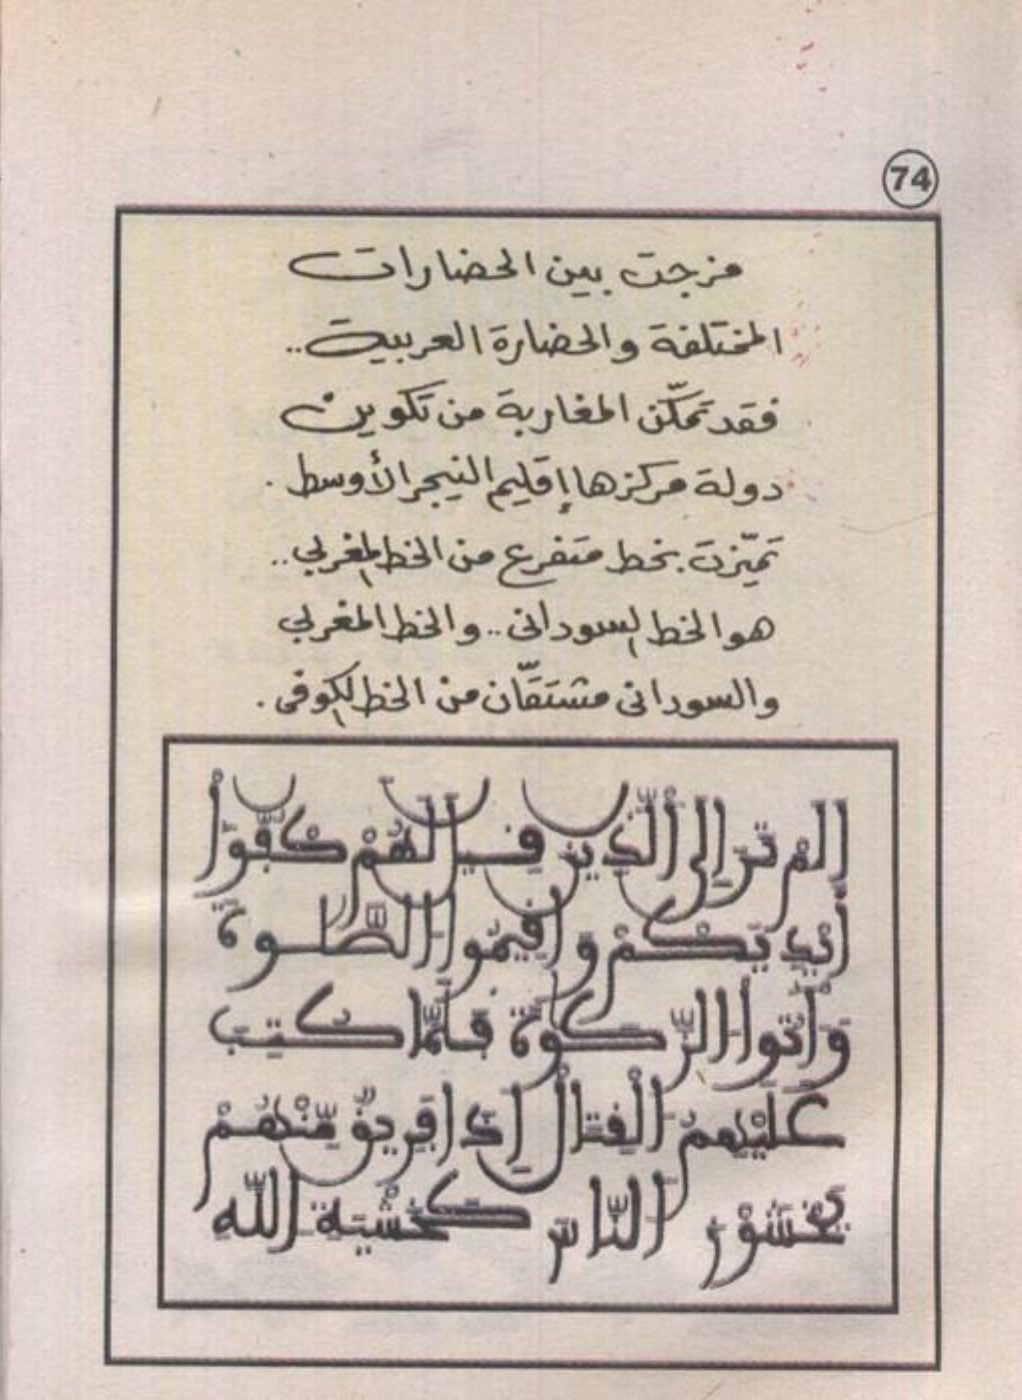 74
مزجت بين الحضارات
المختلفة والحضارة العربية..
فقد تمكّن المغاربة من تكوين
دولة مركزها إقليم النيجر الأوسط.
تميّزت بخط متفرع من الخط المغربي..
هو الخط السوداني.. والخط المغربي
والسوداني مشتقّان من الخط الكوفي.
الم تر إلى الذين قيل لهم كفّوا
أيديكم وأقيموا الصّلوة
وآتوا الزّكوة فلمّا كتب
عليهم القتال إذا فريق مّنهم
يخشون النّاس كخشية اللّه